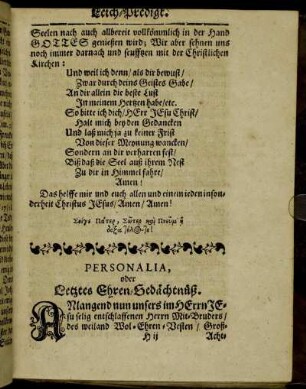 Leich/Predigt.
Seelen nach auch allbereit vollkömmlich in der Hand
GOTTES geniessen wird; Wir aber sehnen uns
noch immer darnach und seufftzen mit der Christlichen
Kirchen:
Und weil ich denn/ als dir bewust/
Zwar durch deins Geistes Gabe/
An dir allein die beste Lust
In meinem Hertzen habe/etc.
So bitte ich dich/ HErr JEsu Christ/
Halt mich bey den Gedancken
Und laß mich ja zu keiner Frist
Von dieser Meynung wancken/
Sondern an dir verharren fest/
Biß daß die Seel auß ihrem Nest
Zu dir in Himmel fahre/
Amen!
Das helffe mir und euch allen und einem ieden inson-
derheit Christus JEsus/ Amen/ Amen!
PERSONALIA,
oder
Letztes Ehren-Gedächtnüß.
Anlangend nun unsers im HErrn JE-
su selig entschlaffenen Herrn Mit-Bruders/
des weiland Wol-Ehren-Vesten/ Groß-
H ij Acht-